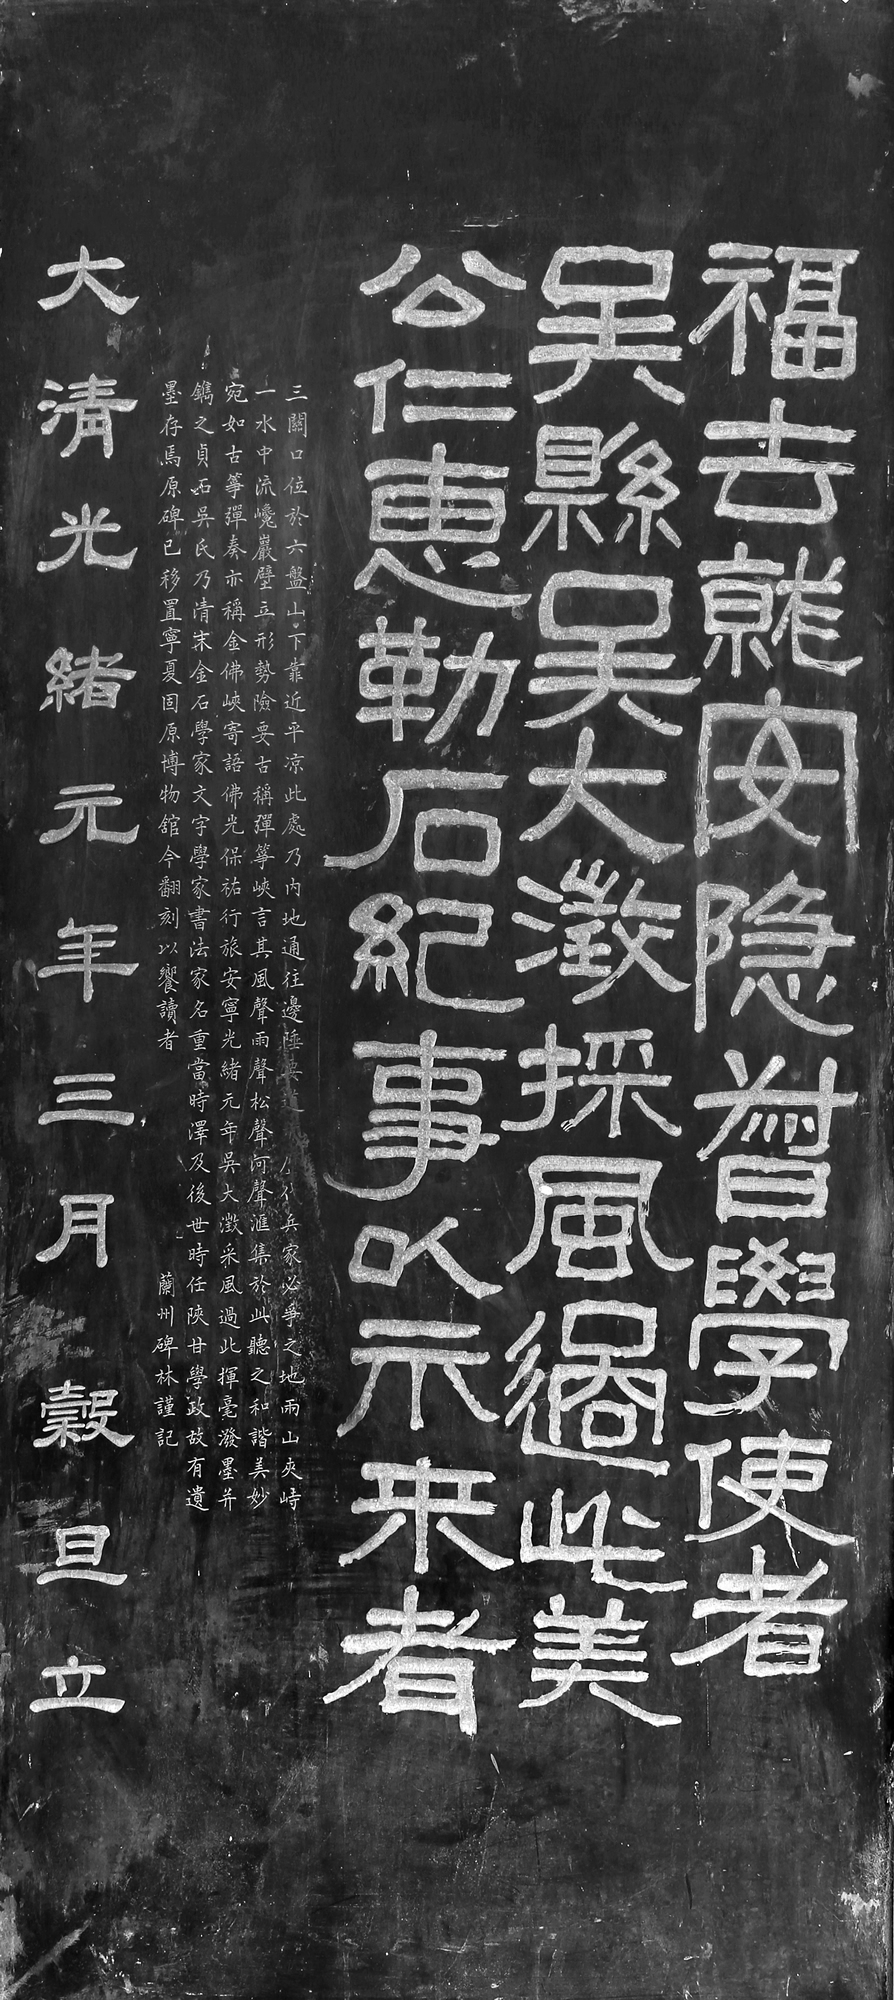 福去就安隐督學使者
吳縣吳大澂採風過此美
公仁惠勒石紀事以示來者
三關口位於六盤山下靠近平涼此處乃内地通往邊陲要道代兵家必爭之地兩山夾峙
一水中流巉巖壁立形勢險要古稱彈箏峽言其風聲雨聲松聲河聲滙集於此聽之和諧美妙
宛如古箏彈奏亦稱金佛峽寄語佛光保祐行旅安寧光緒元年吳大澂采風過此揮毫潑墨并
鐫之貞石吳氏乃清末金石學家文字學家書法家名重當時澤及後世時任陝甘學政故有遺
墨存焉原碑已移置寧夏固原博物舘今翻刻以饗讀者
蘭州碑林謹記
大清光緒元年三月穀旦立